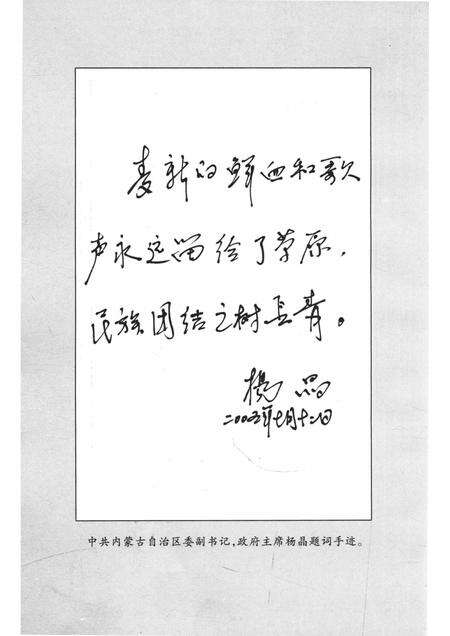 麦新的鲜血和歌
声永远留给了草原，
民族团结之树长青。
杨晶
二〇〇三年七月十二日
中共内蒙古自治区委副书记，政府主席杨晶题词手迹。